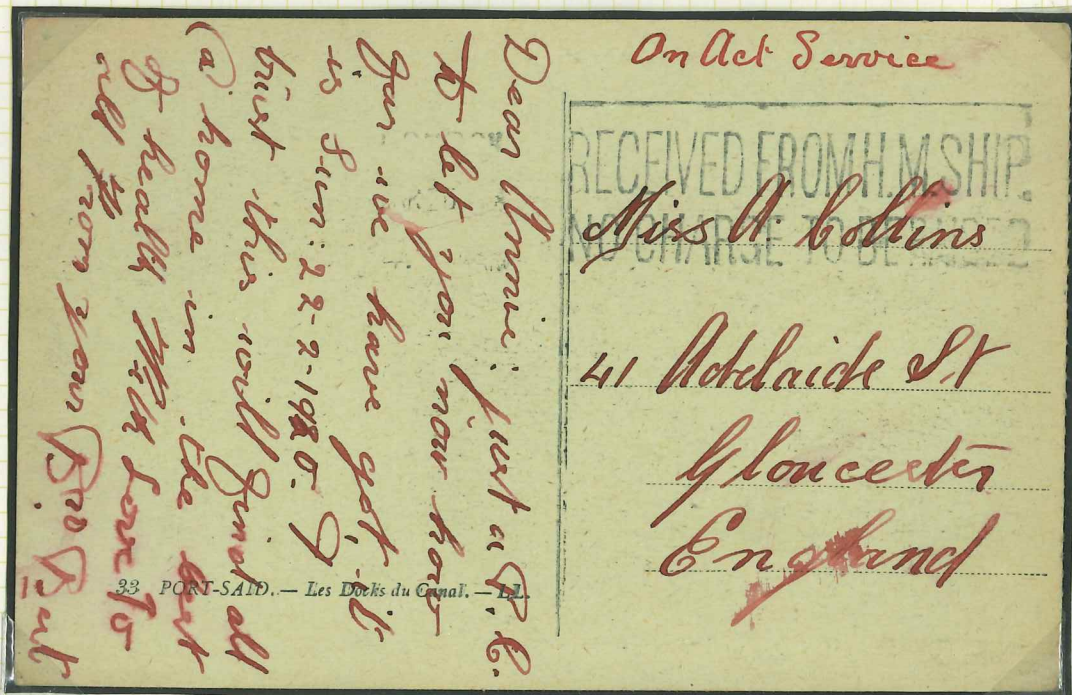 On Act Service
RECEIVED FROM H.M. SHIP.
NO CHARGE TO BE RAISED
Miss A Collins
41 Adelaide St
Gloucester
England
Dear Annie: just a P.C.
to let you now how
far we have got, it
is Sun: 22-2-1920. I
trust this will find all
@ home in the best
of health With love to
all from your Bro Burt
33 PORT-SAID. — Les Docks du Canal. — LL.